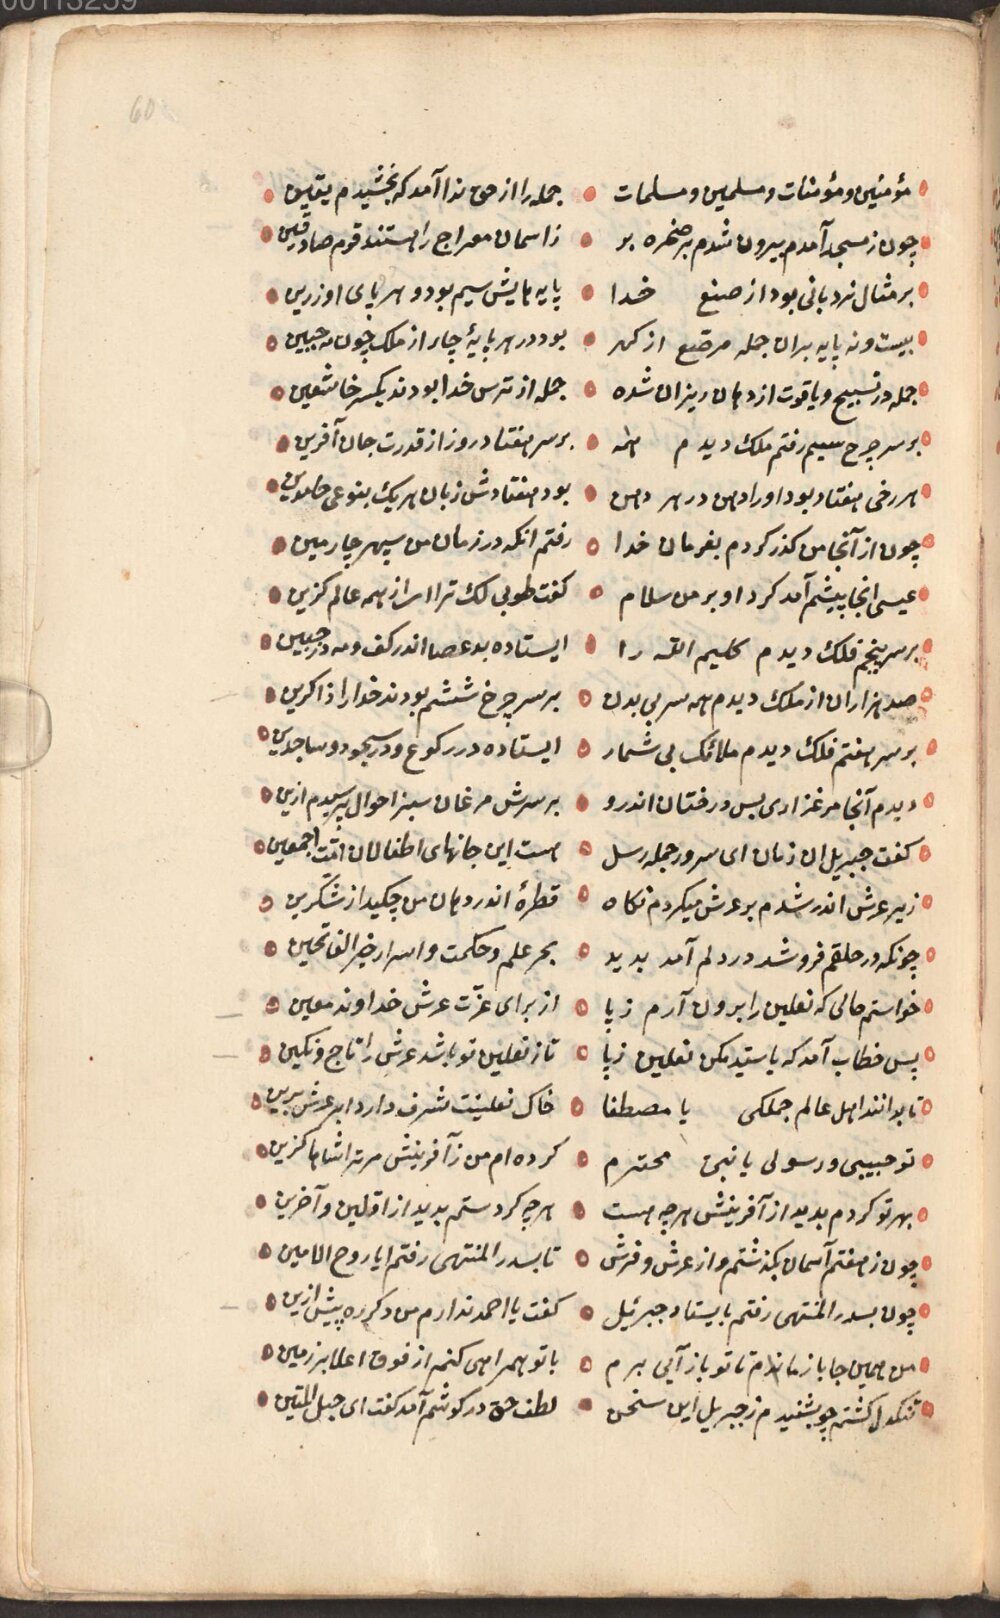 00113259
60
مؤمنین و مؤمنات و مسلمین و مسلمات جمله را از حق ندا آمد که بخشیدم یقین
چون ز مسجد آمدم بیرون شدم بر صخره بر ز اسمان معراج را هستند قوم صادقین
بر مثال نردبانی بود از صنع خدا پایه هایش سیم بود و هر پای او زرین
بیست و نه پایه بران جمله مرصّع از کهر بود در هر پایهٔ چار از ملک چون مه جبین
جمله در تسبیح و یاقوت از دهان ریزان شده جمله از ترس خدا بودند یکسر خاشعین
بر سر چرخ سیم رفتم ملک دیدم همه بر سر هفتاد روز از قدرت جان آفرین
هر رخی هفتاد بود او را دهن در هر دهن بود هفتادش زبان هر یک بنوعی حامدین
چون از آنجا من کذر کردم بفرمان خدا رفتم انکه در زمان من سپهر چارمین
عیسی انجا پیشم آمد کرد او بر من سلام کفت طوبی لک ترا از همه عالم کزین
بر سر پنجم فلک دیدم کلیم اللّه را ایستاده بد عصا اندر کف و مه در جبین
صد هزاران از ملک دیدم همه سر بی بدن بر سر چرخ ششم بودند خدا را ذاکرین
بر سر هفتم فلک دیدم ملائک بی شمار ایستاده در رکوع و در سجود و ساجدین
دیدم آنجا مرغزاری بس درختان اندرو بر سرش مرغان سبز احوال پرسیدم ازین
کفت جبریل ان زمان ای سرور جمله رسل هست این جانهای اطفالان امّت اجمعین
زیر عرش اندر شدم بر عرش میکردم نکاه قطرهٔ اندر دهان من چکید از شکرین
چونکه در حلقم فرو شد در دلم آمد بدید بحر علم و حکمت و اسرار خیر الفاتحین
خواستم حالی که نعلین را برون آرم ز پا از برای عزّت عرش خداوند معین
پس خطاب آمد که یا سید مکن نعلین ز پا تا ز نعلین تو باشد عرش را تاج و نکین
تا بدانند اهل عالم جملکی یا مصطفا خاک نعلینت شرف دارد ابر عرش برین
تو حبیبی و رسولی یا نبیّ محترم کرده ام من ز آفرینش مر ترا شاها کزین
بهر تو کردم بدید از آفرینش هرچه هست هرچه کردستم بدید از اوّلین و آخرین
چون ز هفتم آسمان بکذشتم و از عرش و فرش تا بسدر المنتهی رفتم ایا روح الامین
چون بسدر المنتهی رفتم بایستاد جبرئیل کفت یا احمد ندارم من دکر ره پیش ازین
من همین جا باز مانم تا تو باز آیی برم با تو همراهی کنم از فوق اعلا بر زمین
تنکدل کشتم چو بشنیدم ز جبریل این سخن لطف حق در کوشم آمد کفت ای حبل المتین